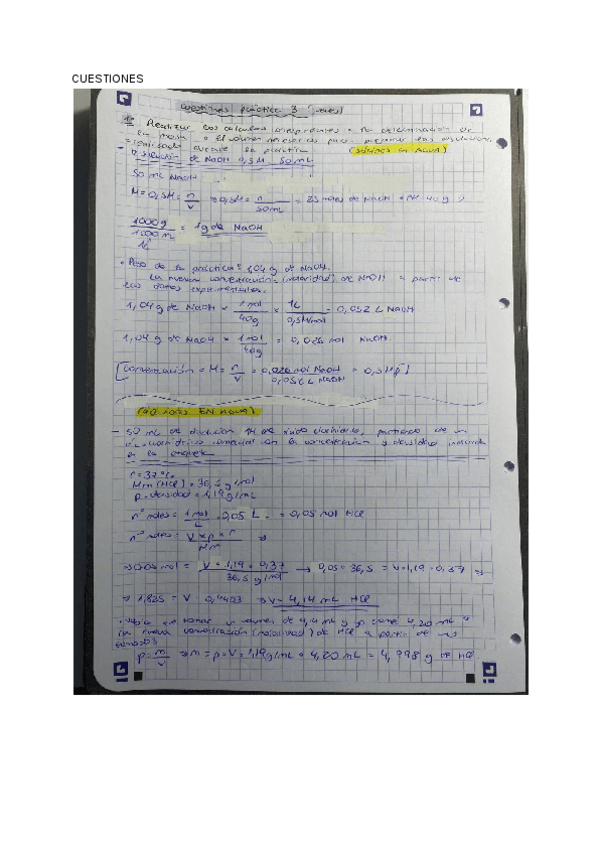 CUESTIONES
cuestiones práctica 3
1. Realizar los cálculos
(SÓLIDOS EN AGUA)
Disolución de NaOH 0,5M 50 mL
50 mL NaOH
M = 0,5M = n/V 0,5M = n/50mL = 25 NaOH 40 g
1000g/1000mL = 1g de NaOH
1L
• Peso de la práctica = 1,04 g de NaOH.
La nueva concentración (molaridad) de NaOH a partir de
los datos experimentales.
1,04 g de NaOH × 1 mol/40g × 1L/0,5 mol = 0,052 L NaOH
1,04 g de NaOH × 1 mol/40g = 0,026 mol NaOH.
[Concentración = M = n/V = 0,026 mol NaOH/0,052 L NaOH = 0,5M]
(LÍQUIDOS EN AGUA)
- 50 mL de disolución 1M de ácido clorhídrico, partiendo de un
clorhídrico comercial con la concentración y densidad indicada
en la etiqueta
r = 37%
Mm (HCl) = 36,5 g/mol
ρ = densidad = 1,19 g/mL
nº moles = 1 mol/L · 0,05 L = 0,05 mol HCl
nº moles = V × ρ × r/Mm ⇒
⇒ 0,05 mol = V × 1,19 × 0,37/36,5 g/mol → 0,05 × 36,5 = V × 1,19 · 0,37 ⇒
⇒ 1,825 = V · 0,4403 ⇒ V = 4,14 mL HCl
que tomar un volumen de 4,14 mL y yo tomé 4,20 mL
la nueva concentración (molaridad) de HCl a partir de
ρ = m/V ⇒ m = ρ × V = 1,19 g/mL × 4,20 mL = 4,998 g de HCl